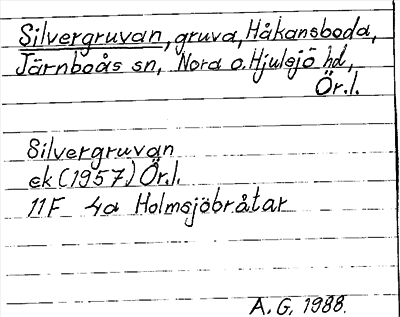 Silvergruvan, gruva, Håkansboda,
Järnboås sn, Nora o. Hjulsjö hd,
Ör.l.
Silvergruvan
ek (1957) Ör.l.
11F 4a Holmsjöbråtar
A.G. 1988.